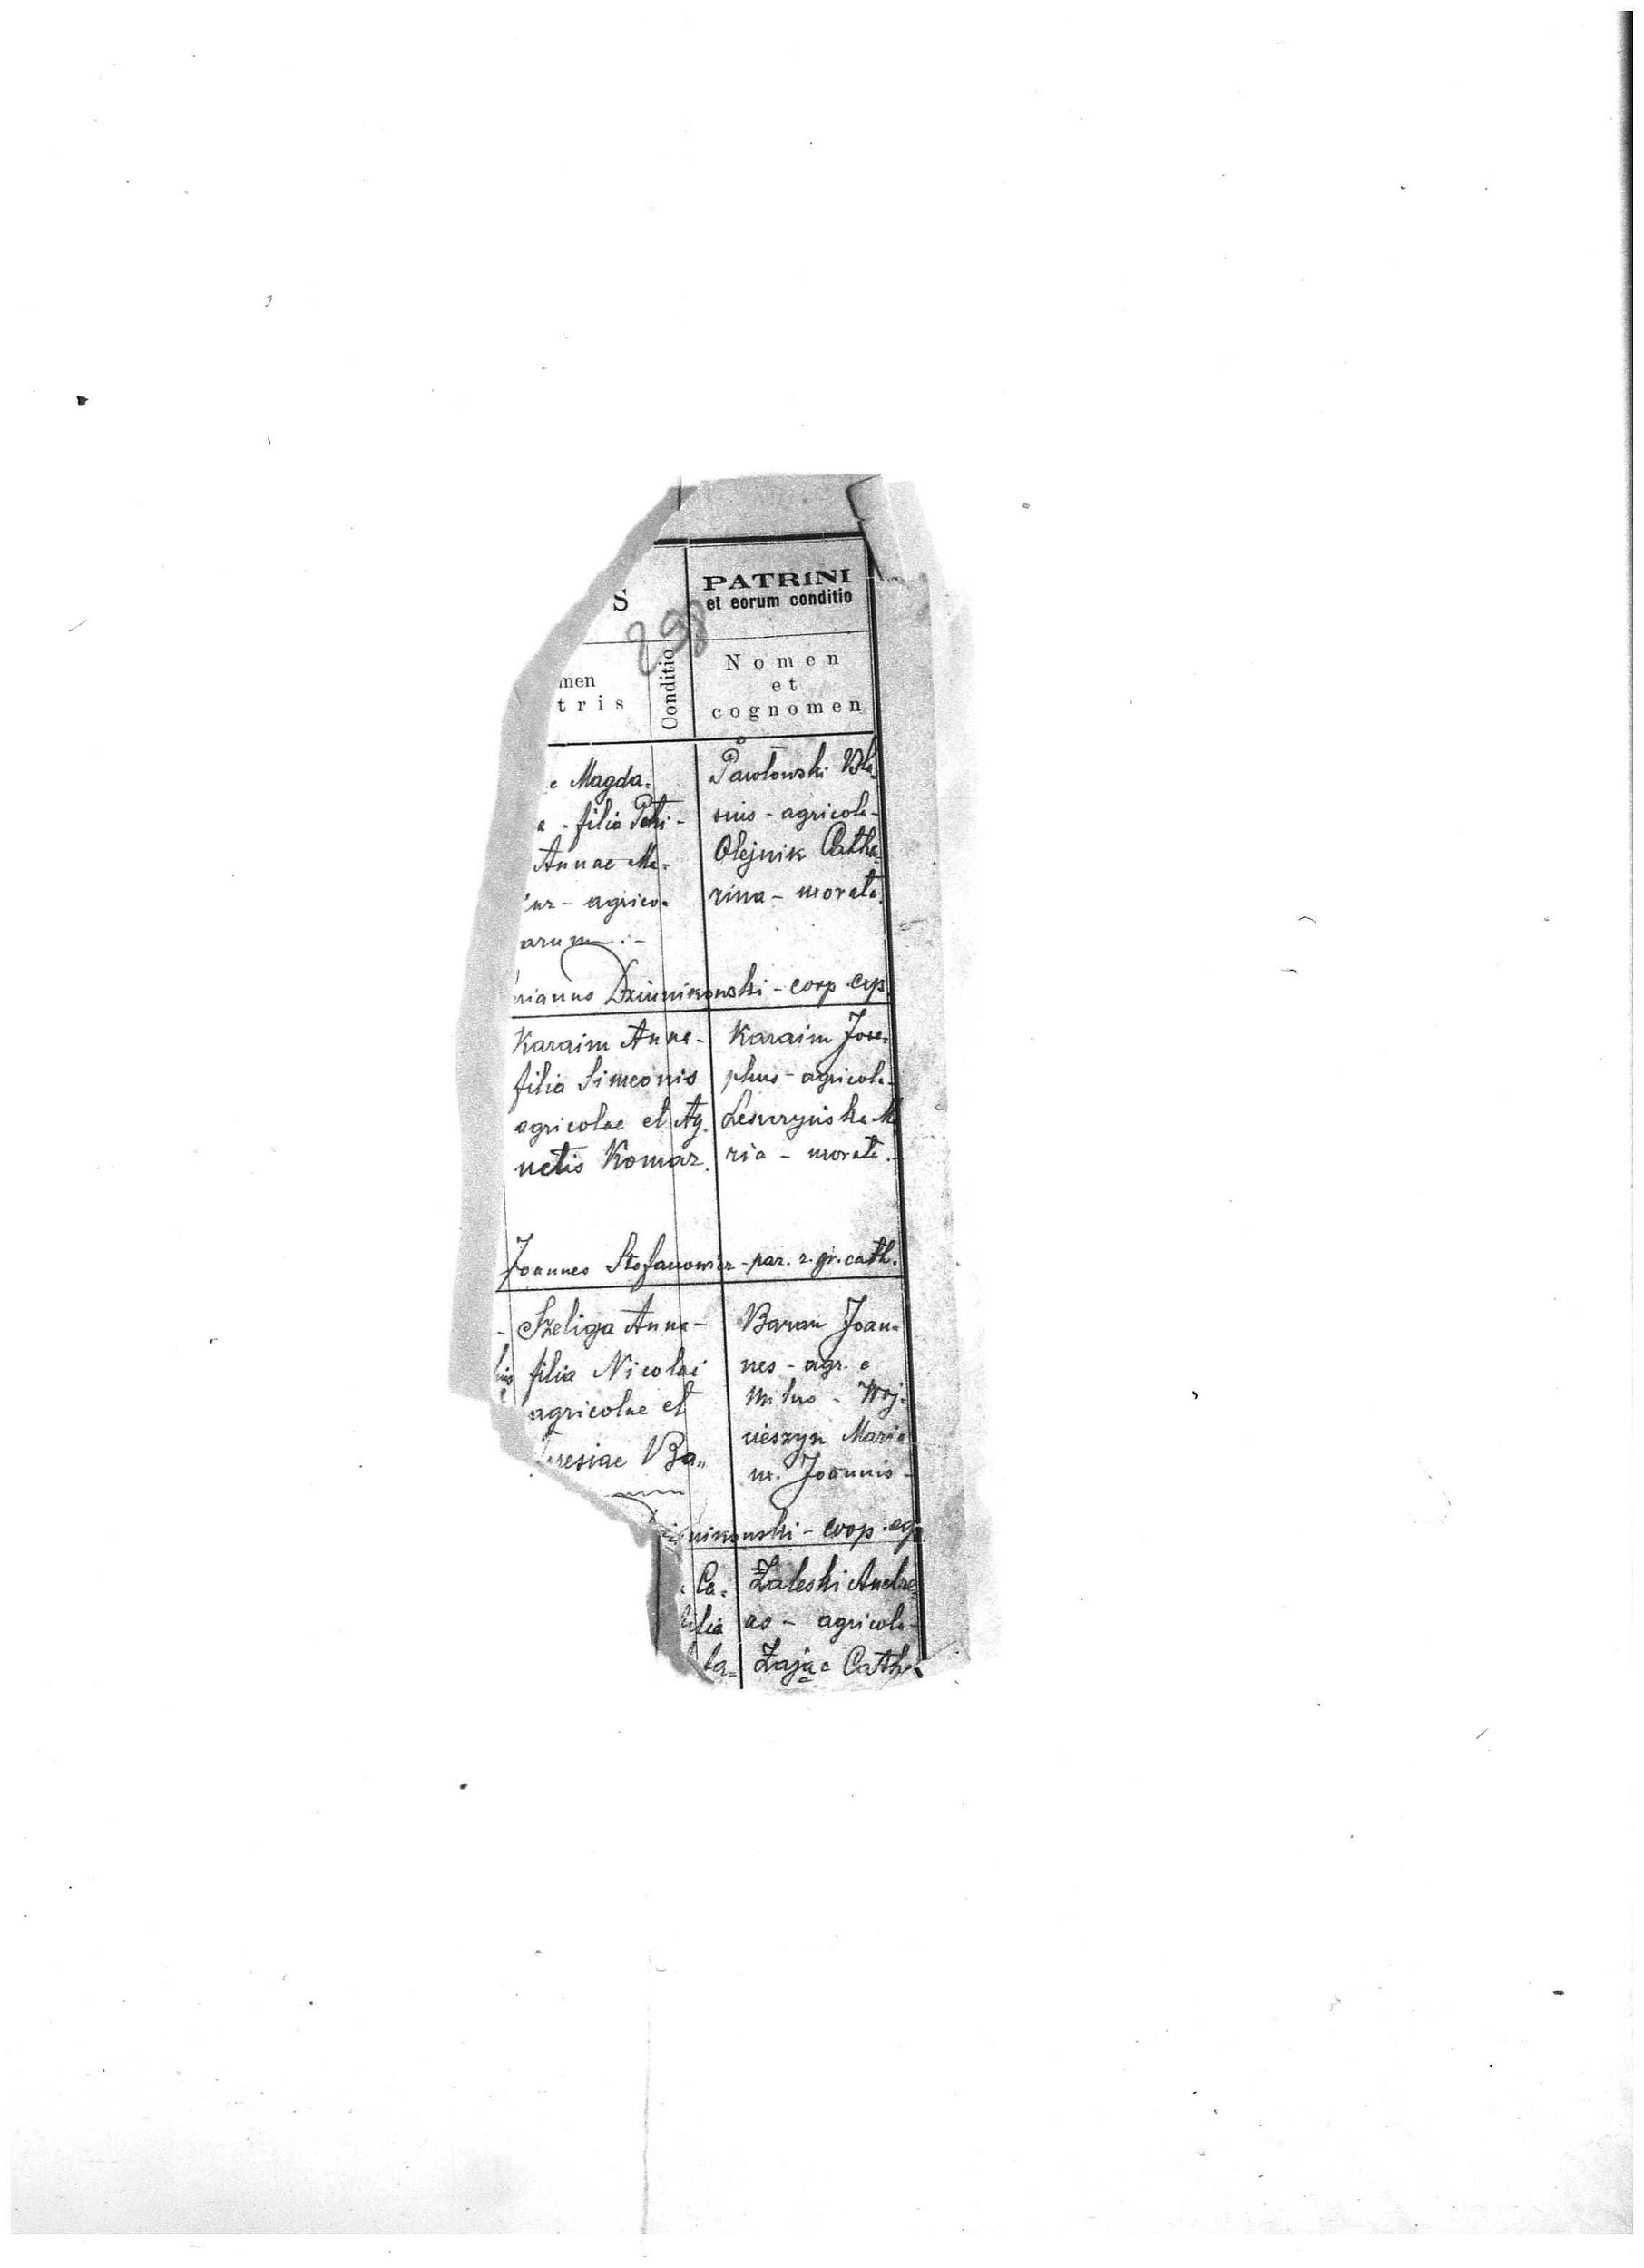 S
298
PATRINI
et eorum conditio
men
tris
Conditio
Nomen
et
cognomen
Magda=
- filia Petri -
Annae Ma=
- agrico=
arum.-
Pawłowski Bla=
sius - agricola -
Olejnik Catha=
rina - morata.
Dziunikowski - coop. exp.
Karaim Anna -
filia Simeonis
agricolae et Ag=
netis Komar.
Karaim Jose=
phus - agricola -
Leszczyńska Ma
ria - morata.-
Joannes Stefanowicz - par. r. gr. cath.
- Szeliga Anna -
filia Nicolai
agricolae et
resiae Ba=
Baran Joan=
nes - agr. e
Milno - Woj=
cieszyn Maria
ux. Joannis -
nikowski - coop. exp
Ca=
filia
la=
Zaleski Andre=
as - agricola -
Zając Catha